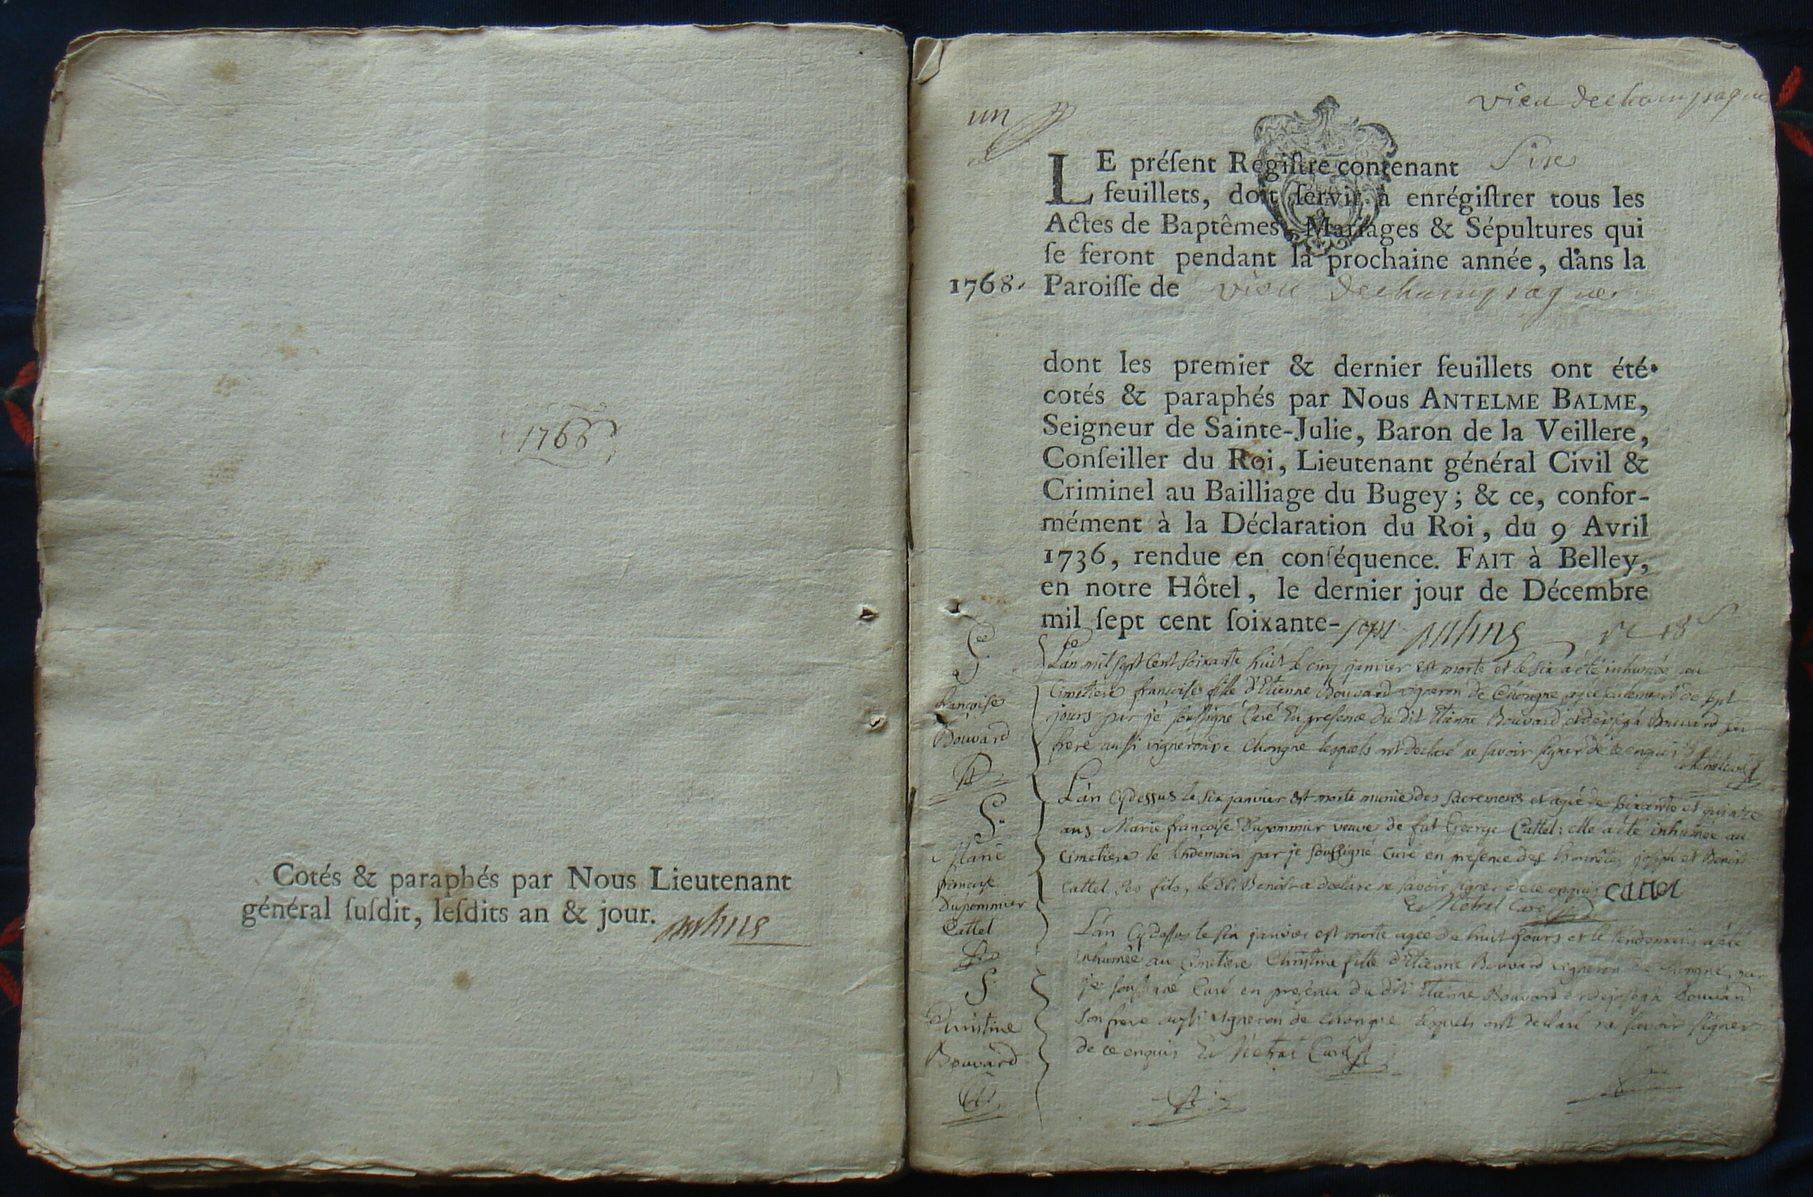 1766
Cotés & paraphés par Nous Lieutenant
général ſuſdit, leſdits an & jour.
un
vieu dechampagne
LE préſent Regiſtre contenant
feuillets, doit ſervir à enrégiſtrer tous les
Actes de Baptêmes, Mariages & Sépultures qui
ſe feront pendant la prochaine année, dans la
1768. Paroiſſe de vieu dechampagne
dont les premier & dernier feuillets ont été
cotés & paraphés par Nous ANTELME BALME,
Seigneur de Sainte-Julie, Baron de la Veillere,
Conſeiller du Roi, Lieutenant général Civil &
Criminel au Bailliage du Bugey; & ce, confor-
mément à la Déclaration du Roi, du 9 Avril
1736, rendue en conſéquence. FAIT à Belley,
en notre Hôtel, le dernier jour de Décembre
mil ſept cent ſoixante-sept
S
françoise
Bouvard
L'an mil sept cent soixante huit le cinq janvier est morte et le six a été inhumée au
Cimetiere françoise fille d'Etienne Bouvard vigneron de Chongne agée seulement de sept
jours par je soussigné Curé en presence du dit Etienne Bouvard et de joseph Bouvard son
frere aussi vigneron de Chongne lesquels ont declaré ne savoir signer de ce enquis
S.
Marie
francoise
Dupommier
Cattet
L'an cydessus le six janvier est morte munie des sacremens et agée de soixante et quinze
ans Marie françoise Dupommier veuve de fut George Cattet: elle a été inhumée au
Cimetiere le lendemain par je soussigné Curé en presence des honnêtes joseph et Benoit
Cattet ses fils, le dit Benoit a declaré ne savoir signer de ce enquis cattet
Netral Curé
S.
Christine
Bouvard
L'an cydessus le six janvier est morte agée de huit jours et le lendemain a été
inhumée au Cimetiere Christine fille d'Etienne Bouvard vigneron de Chongne, par
je soussigné Curé en presence du dit Etienne Bouvard et de joseph Bouvard
son frere aussi vigneron de Chongne lesquels ont declaré ne savoir signer
de ce enquis Netral Curé